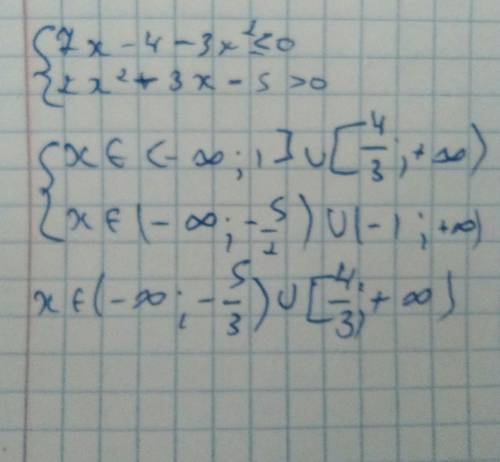 { 7x - 4 - 3x² ≤ 0
{ 2x² + 3x - 5 > 0
{ x ∈ (-∞; 1] ∪ [4/3; +∞)
{ x ∈ (-∞; -5/2) ∪ (-1; +∞)
x ∈ (-∞; -5/3) ∪ [4/3; +∞)